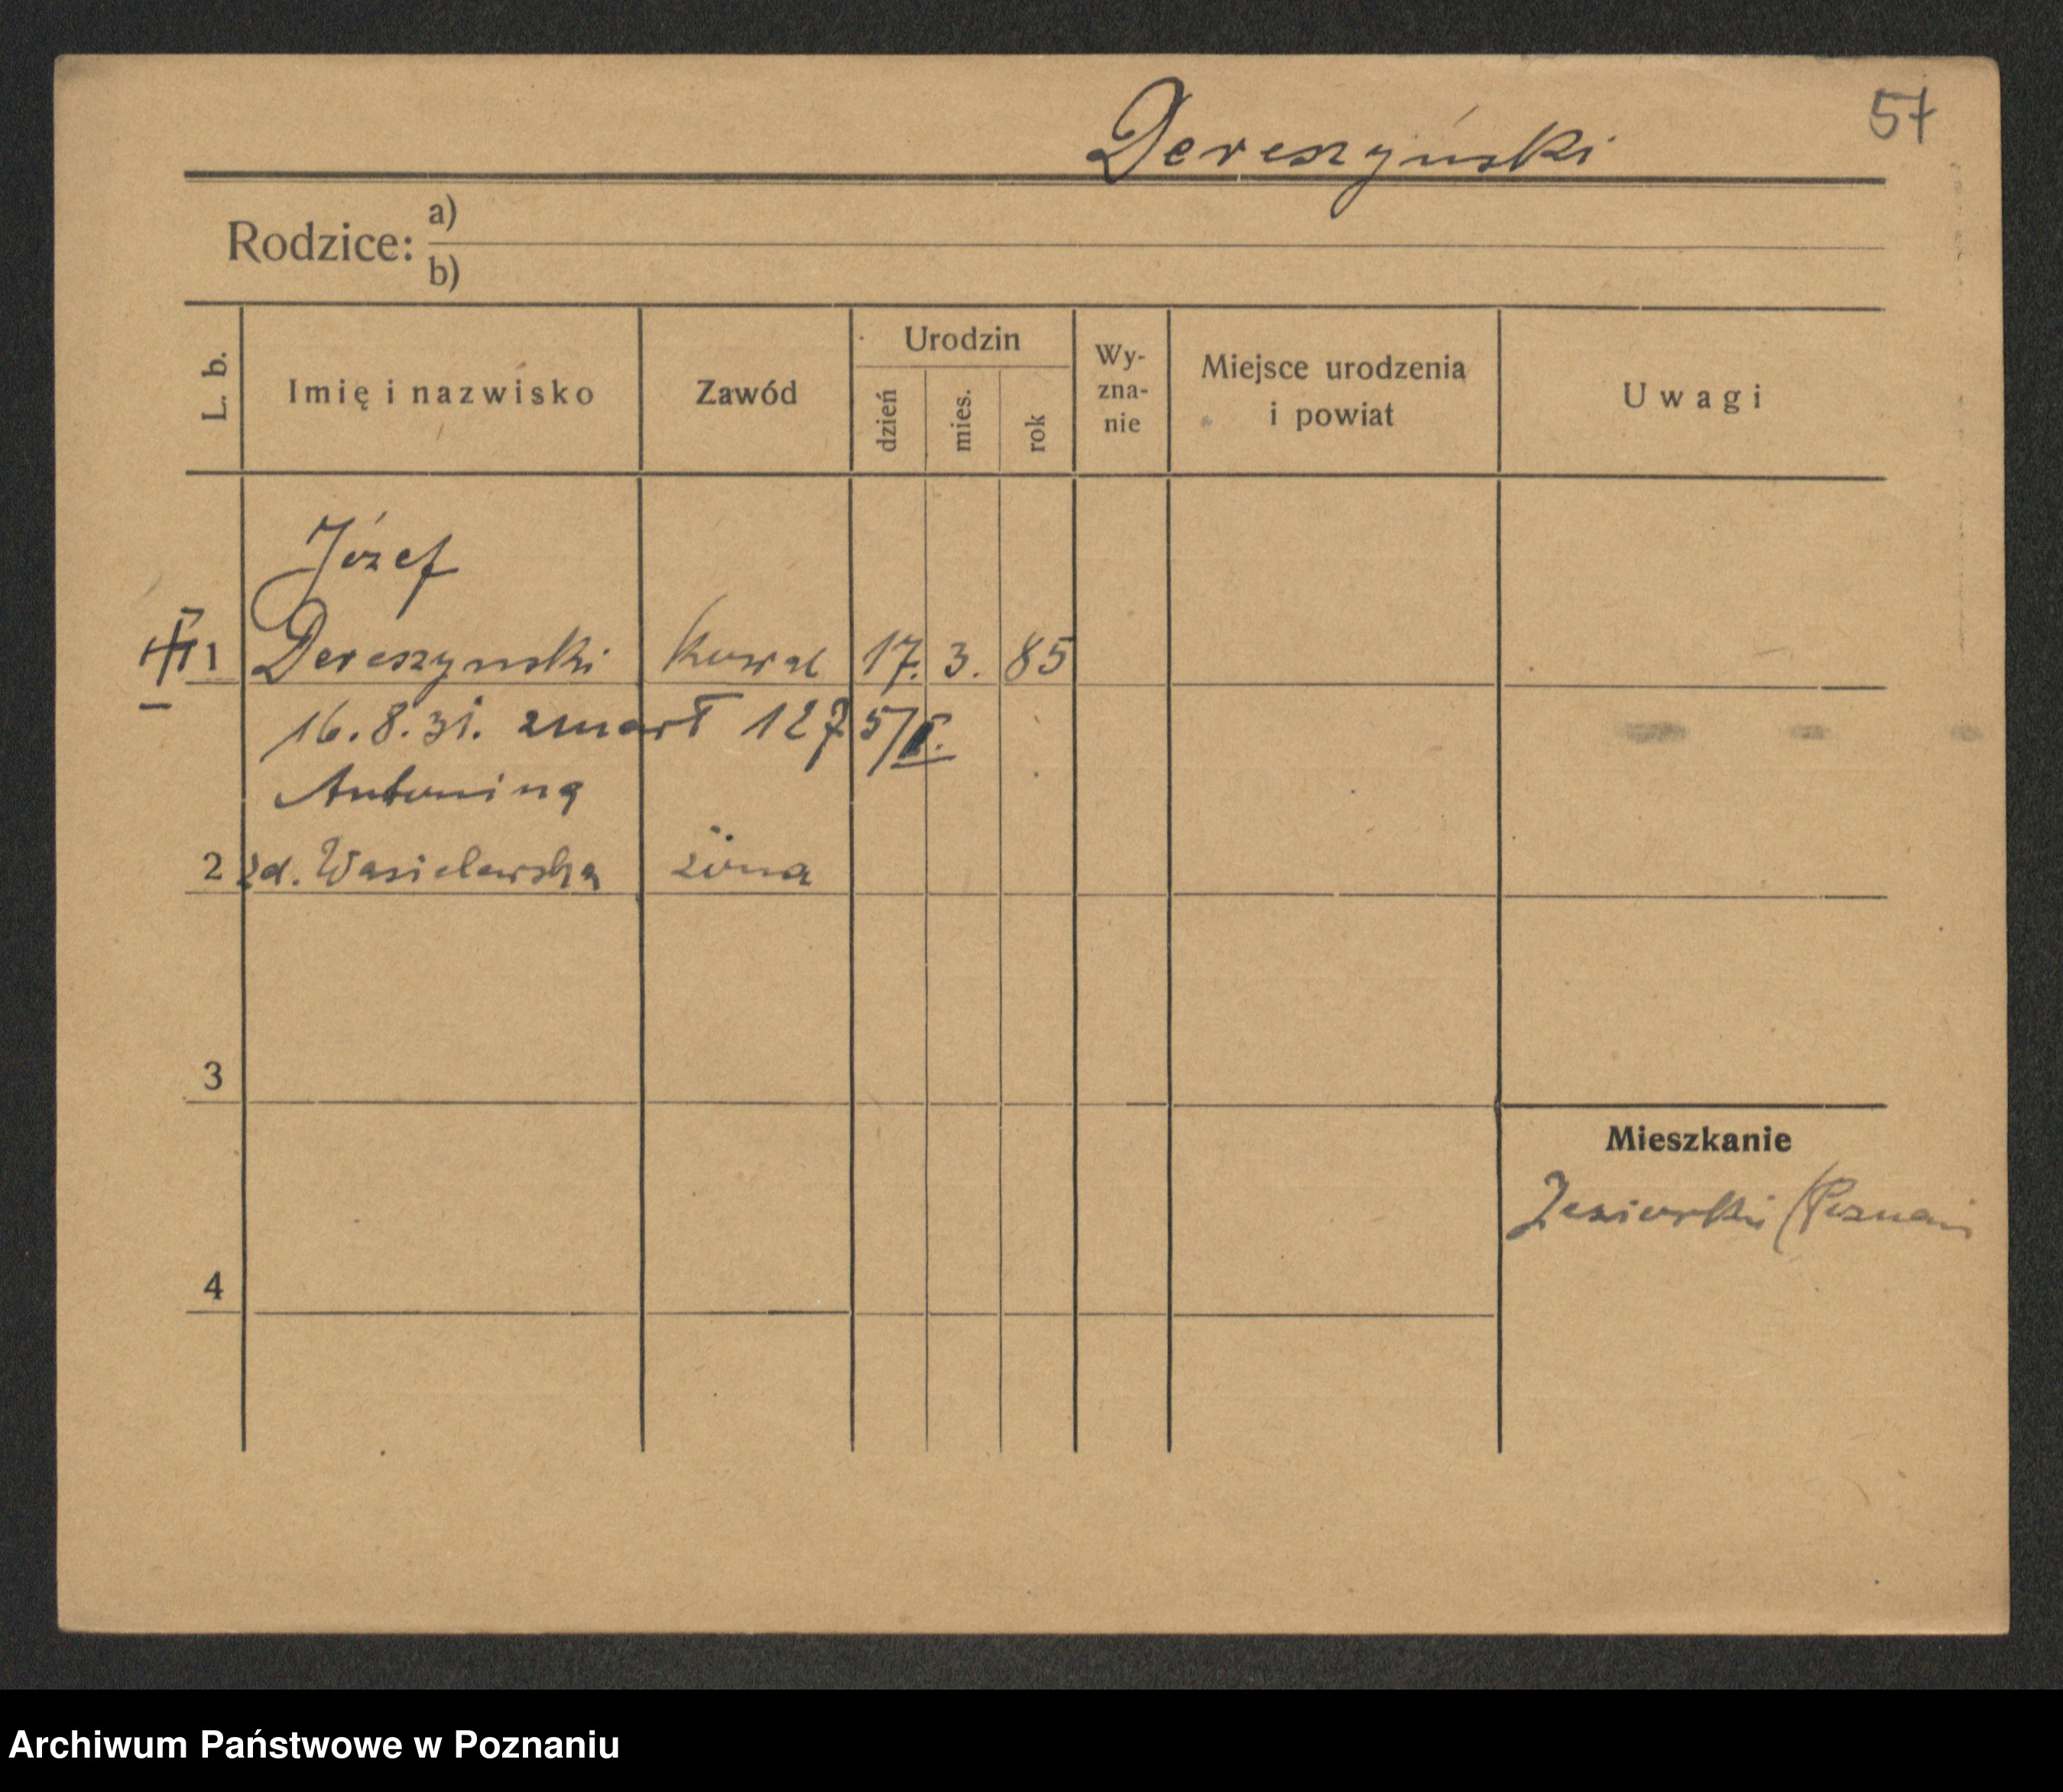 57
Dereszyński
Rodzice: a)
b)
L. b.
Imię i nazwisko
Zawód
Urodzin
dzień
mies.
rok
Wy-
zna-
nie
Miejsce urodzenia
i powiat
Uwagi
Józef
1 Dereszynski kowal 17. 3. 85
16.8.31. zmarł 1275/I.
Antonina
2 zd. Wasielewska żona
3
4
Mieszkanie
(Poznań
Archiwum Państwowe w Poznaniu